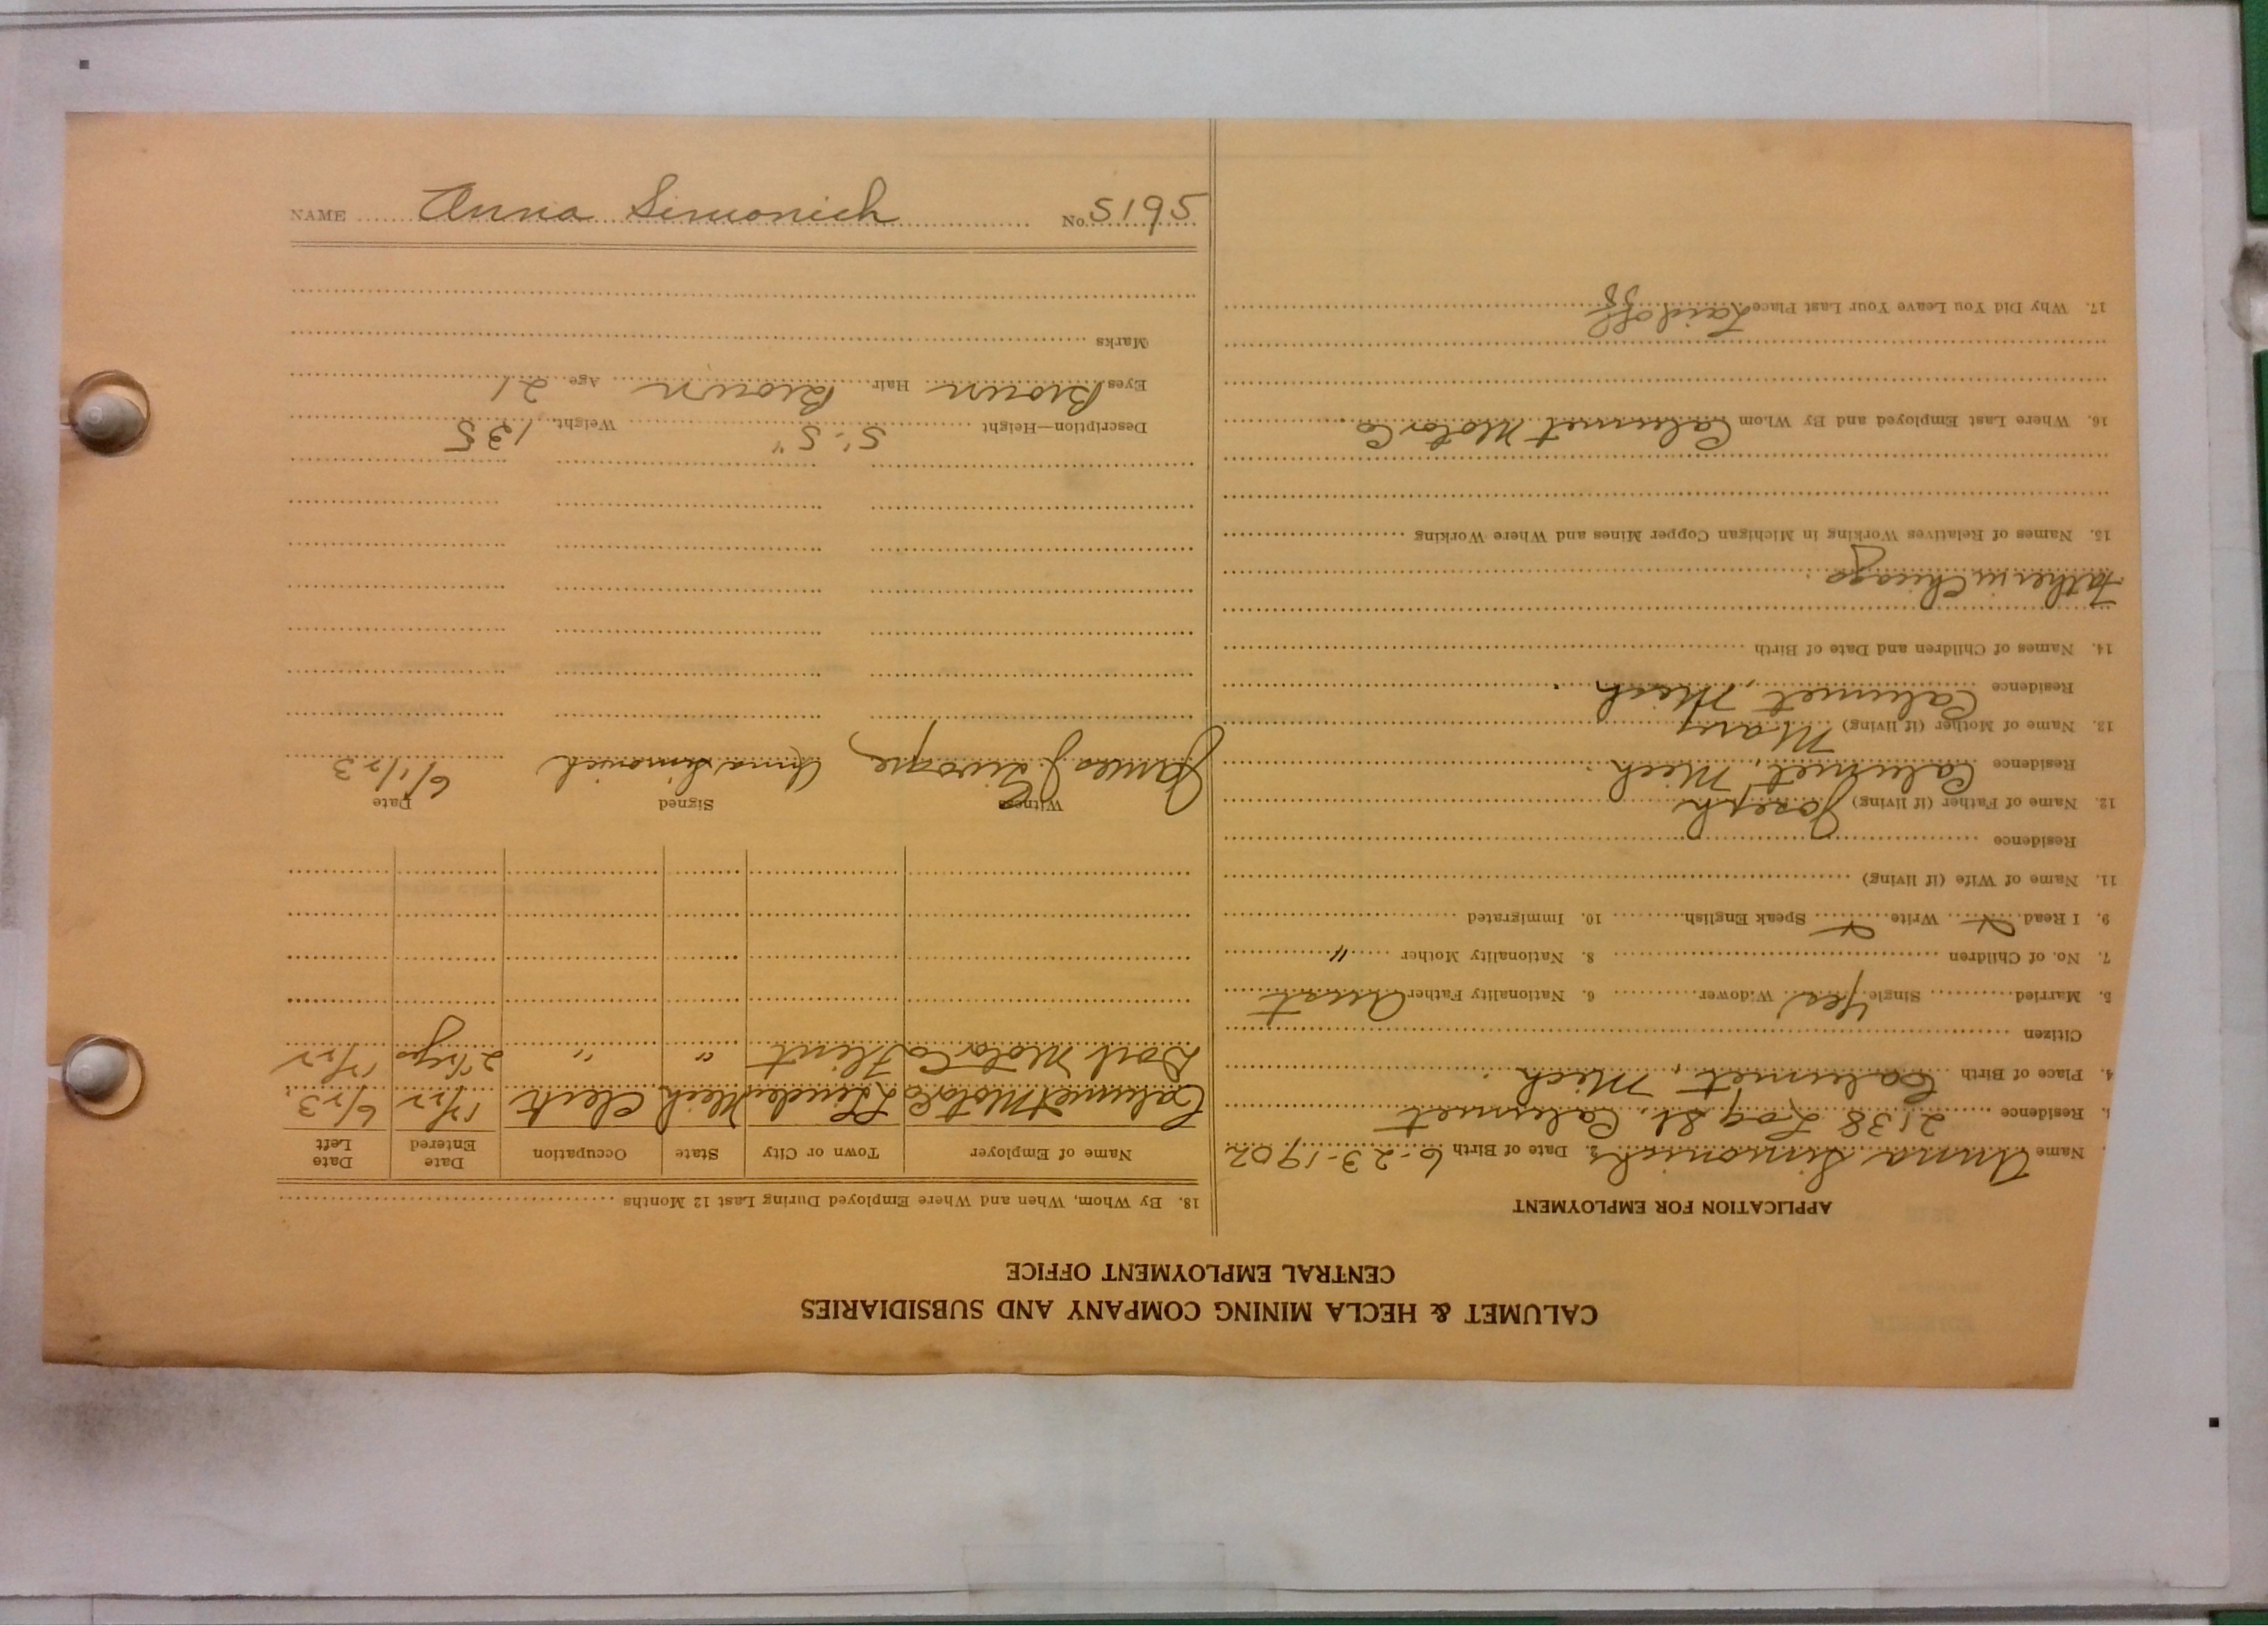 NAME Anna Simonich No. 5195
CALUMET & HECLA MINING COMPANY AND SUBSIDIARIES
CENTRAL EMPLOYMENT OFFICE
APPLICATION FOR EMPLOYMENT
Name Anna Simonich 2. Date of Birth 6-23-1902
Residence 2138 Log St. Calumet
4. Place of Birth Calumet, Mich.
Citizen
5. Married Single Yes Widower 6. Nationality Father Aust
7. No. of Children 8. Nationality Mother "
9. I Read Write Speak English 10. Immigrated
11. Name of Wife (if living)
Residence
12. Name of Father (if living) Joseph
Residence Calumet, Mich.
13. Name of Mother (if living) Mary
Residence Calumet, Mich.
14. Names of Children and Date of Birth
Father in Chicago.
15. Names of Relatives Working in Michigan Copper Mines and Where Working
16. Where Last Employed and By Whom Calumet Motor Co.
17. Why Did You Leave Your Last Place Laid off
18. By Whom, When and Where Employed During Last 12 Months
Name of Employer Town or City State Occupation Date Entered Date Left
Calumet Motor Co Mich Clerk 6/23
Dort Motor Co Flint " "
Witness Signed Date
James J. Anna Simonich 6/1/23
Description—Height 5'-5" Weight 135
Eyes Brown Hair Brown Age 21
Marks